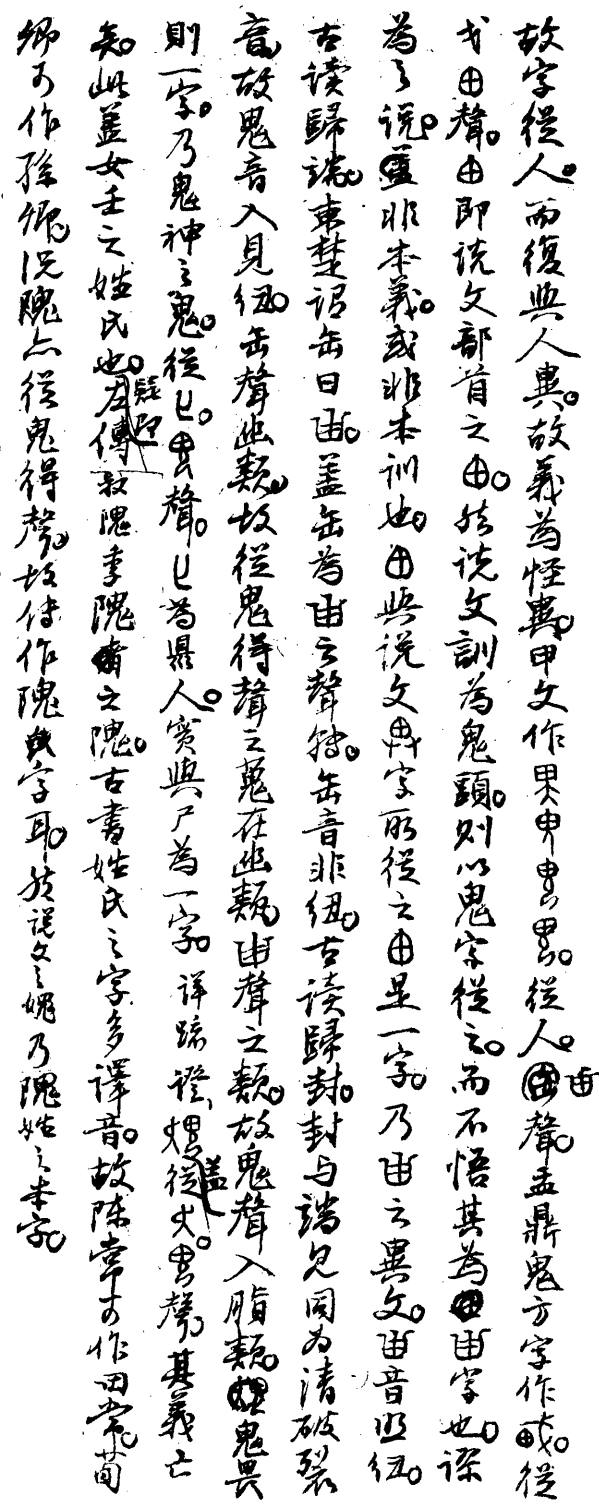 故字從人。而復與人異。故義為怪異。甲文作 從人。甶聲。盂鼎鬼方字作 從
戈甶聲。甶即說文部首之甶。然說文訓為鬼頭。則以鬼字從之。而不悟其為甾字也。謬
為之說。蓋非本義或非本訓也。甶與說文 字所從之甶是一字。乃甾之異文。甾音照紐。
古讀歸端。東楚謂缶曰甾。蓋缶為甾之聲轉。缶音非紐。古讀歸封。封与端見同為清破裂
音。故鬼音入見紐。缶聲幽類。故從鬼得聲之蒐在幽類。甾聲之類。故鬼聲入脂類。鬼畏
則一字。乃鬼神之鬼。從 聲。 為鼎人。實與尸為一字。詳疏證。 蓋從火。 聲。其義亡
矣。此蓋女壬之姓氏也。疑即左傳叔隗季隗之隗。古書姓氏之字多譯音。故陳常可作田常。荀
卿可作孫卿。況隗亦從鬼得聲。故傳作隗字耳。然說文之媿乃隗姓之本字。